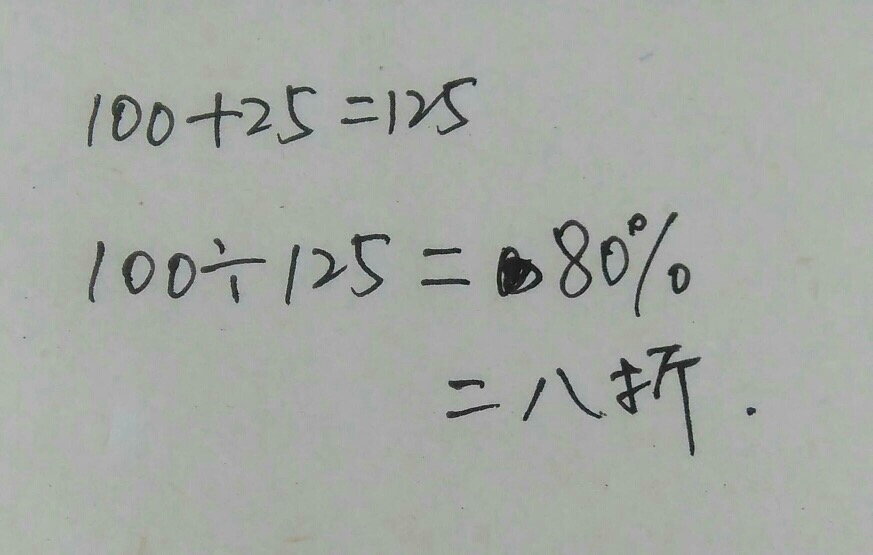 100+25=125
100÷125=80%
=八折.